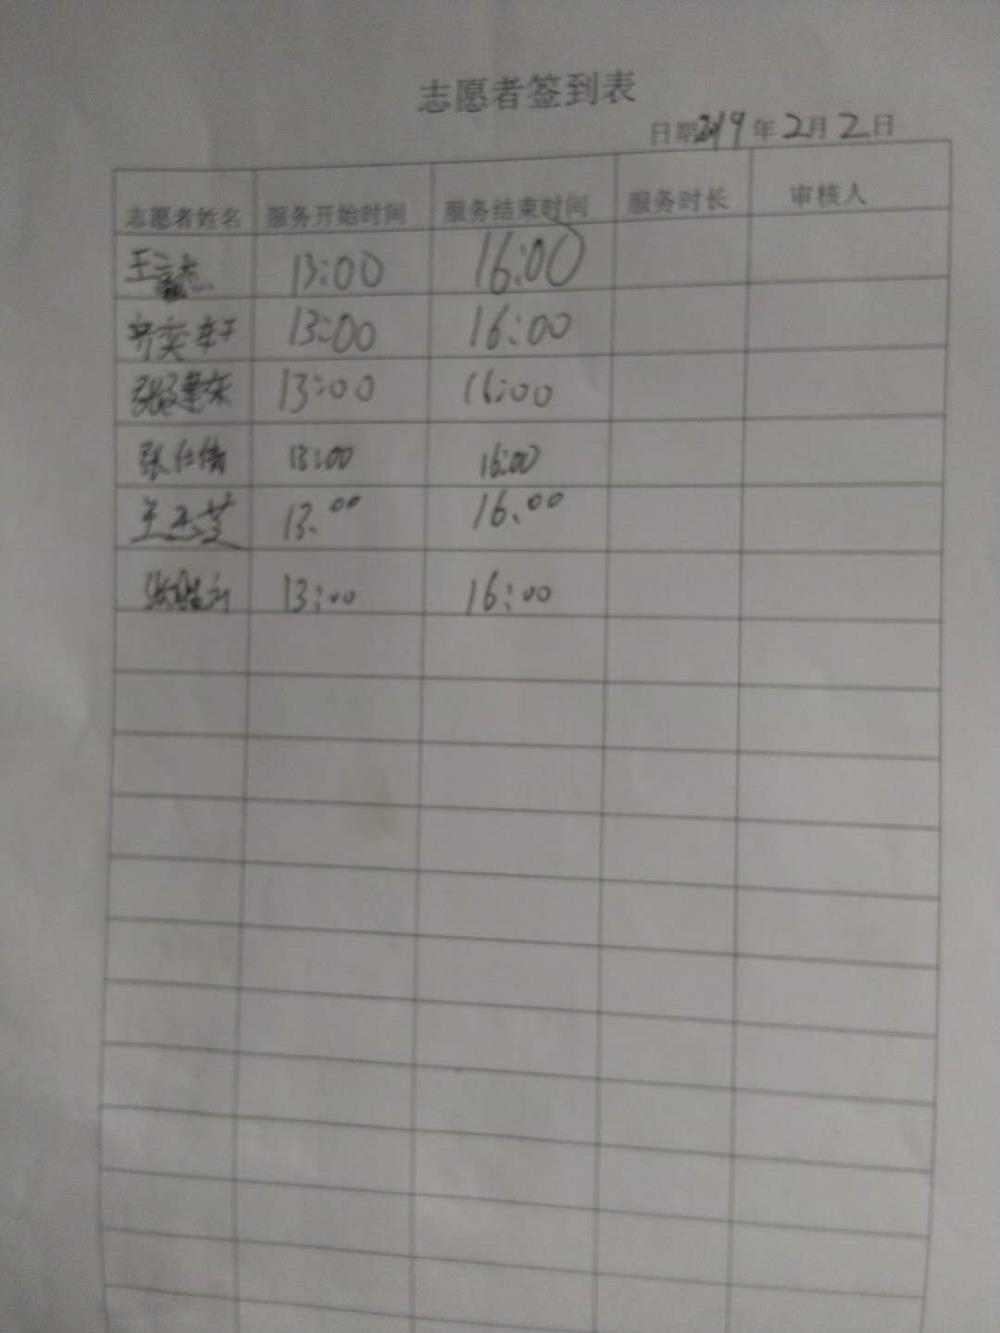 志愿者签到表
日期2019年2月2日
志愿者姓名 服务开始时间 服务结束时间 服务时长 审核人
13:00 16:00
齐奕轩 13:00 16:00
张建东 13:00 16:00
张仕倩 13:00 16:00
王玉芝 13:00 16:00
13:00 16:00